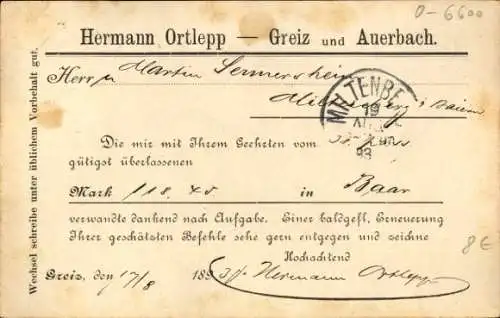 0-6600
Hermann Ortlepp — Greiz und Auerbach.
Herrn Martin Sennersheim
Miltenberg i/Baiern
MILTENBE
19
93
Die mir mit Ihrem Geehrten vom
gütigst überlassenen
Mark 118.45 in Baar
verwandte dankend nach Aufgabe. Einer baldgefl. Erneuerung
Ihrer geschätzten Befehle sehe gern entgegen und zeichne
Hochachtend
Greiz, den 17/8 1893 Hermann Ortlepp
Wechsel schreibe unter üblichem Vorbehalt gut.
8€